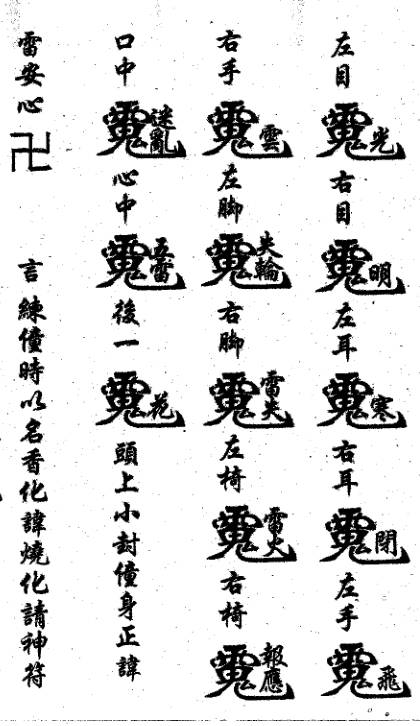 左目 光 右目 明 左耳 寒 右耳 閉 左手 飛
右手 雲 左脚 輪 右脚 雷 左椅 雷火 右椅 報應
口中 迷亂 心中 五雷 後一 花 頭上小封僮身正諱
雷安心 卍 言 練僮時以名香化諱燒化請神符